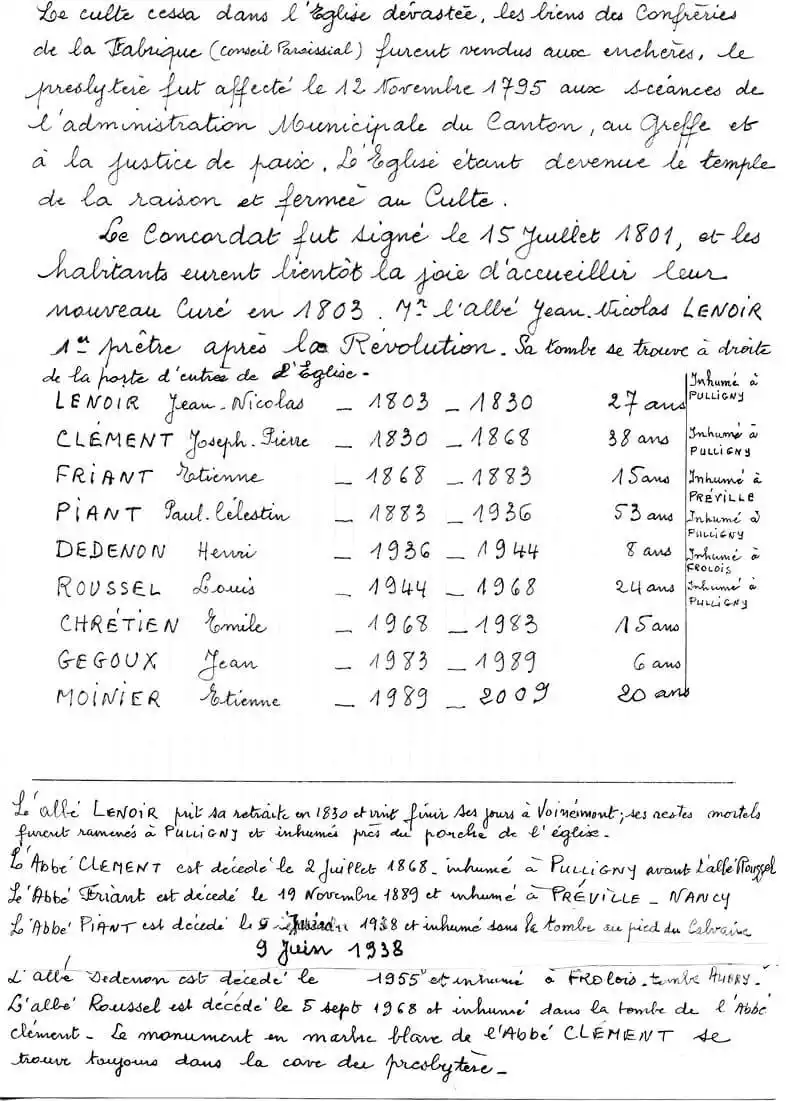 Le culte cessa dans l'Eglise dévastée, les biens des Confréries
de la Fabrique (conseil Paroissial) furent vendus aux enchères, le
presbytère fut affecté le 12 Novembre 1795 aux scéances de
l'administration Municipale du Canton, au Greffe et
à la justice de paix. L'Eglise étant devenue le temple
de la raison et fermée au Culte.
Le Concordat fut signé le 15 Juillet 1801, et les
habitants eurent bientôt la joie d'accueillir leur
nouveau Curé en 1803. Mr l'abbé Jean-Nicolas LENOIR
1er prêtre après la Révolution. Sa tombe se trouve à droite
de la porte d'entrée de l'Eglise.
LENOIR Jean-Nicolas - 1803 - 1830 27 ans Inhumé à PULLIGNY
CLÉMENT Joseph-Pierre - 1830 - 1868 38 ans Inhumé à PULLIGNY
FRIANT Etienne - 1868 - 1883 15 ans Inhumé à PRÉVILLE
PIANT Paul-Célestin - 1883 - 1936 53 ans Inhumé à PULLIGNY
DEDENON Henri - 1936 - 1944 8 ans Inhumé à FROLOIS
ROUSSEL Louis - 1944 - 1968 24 ans Inhumé à PULLIGNY
CHRÉTIEN Emile - 1968 - 1983 15 ans
GEGOUX Jean - 1983 - 1989 6 ans
MOINIER Etienne - 1989 - 2009 20 ans
L'abbé LENOIR prit sa retraite en 1830 et vint finir ses jours à Voinémont; ses restes mortels
furent ramenés à PULLIGNY et inhumés près du porche de l'église.
L'Abbé CLEMENT est décédé le 2 Juillet 1868. inhumé à PULLIGNY avant l'abbé Roussel
L'Abbé Friant est décédé le 19 Novembre 1889 et inhumé à PRÉVILLE - NANCY
L'Abbé PIANT est décédé le 9 1938 et inhumé dans la tombe au pied du Calvaire
9 Juin 1938
L'abbé Dedenon est décédé le 1955 et inhumé à FROLOIS. tombe AUBRY.
L'abbé Roussel est décédé le 5 sept 1968 et inhumé dans la tombe de l'Abbé
clément - Le monument en marbre blanc de l'Abbé CLÉMENT se
trouve toujours dans la cave du presbytère -